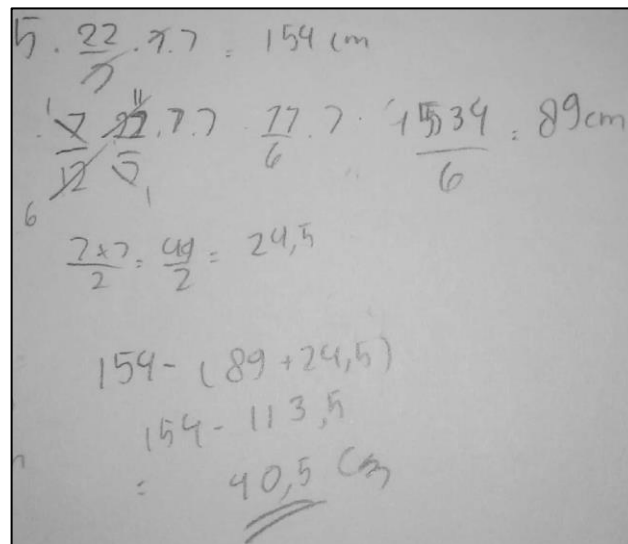 5 . 22/7 . 7 . 7 = 154 cm
7/12 . 22/7 . 7 . 7 . 77/6 . 7 . 534/6 = 89 cm
7×7/2 = 49/2 = 24,5
154 - (89 + 24,5)
154 - 113,5
= 40,5 Cm